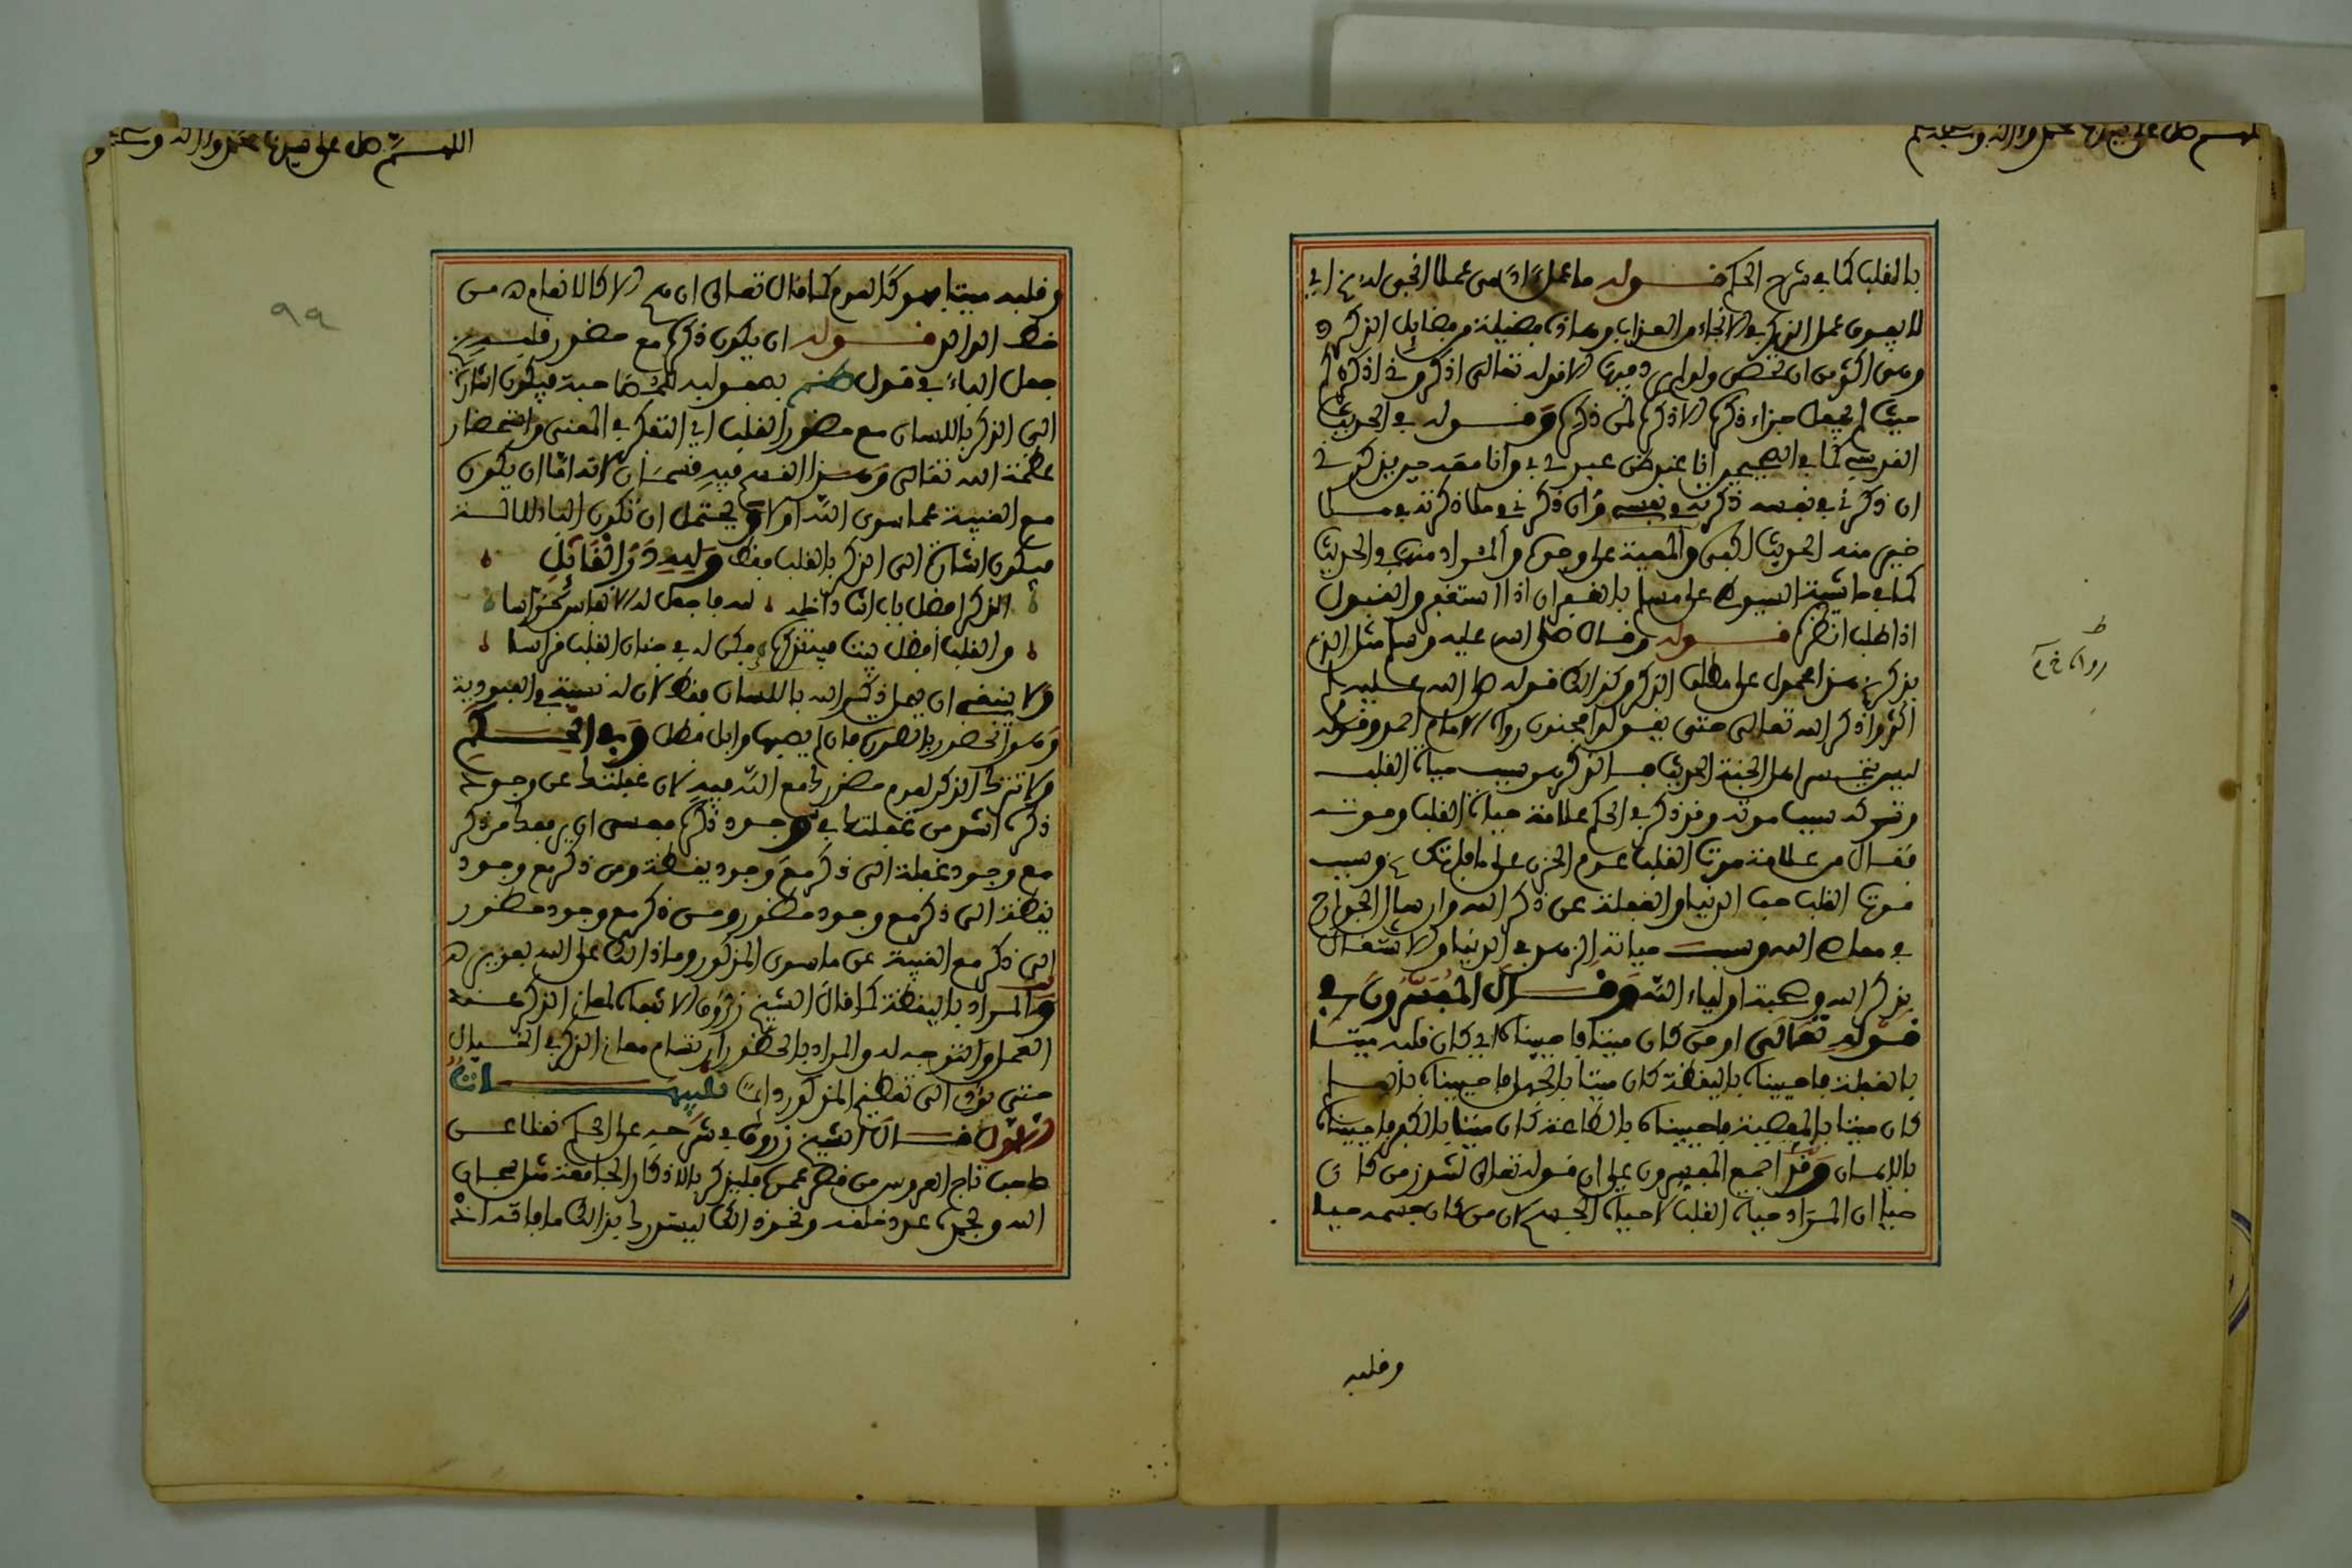 اللهم صل على سيدنا محمد وآله وصحبه وسلم
بالقلب كما في شرح الحكم قوله ما عمل ادمي عملا انجى له الخ اي
لا يفوق عمل الذكر في الانجاء من العذاب وهاذه فضيلة من فضائل الذكر
وهي اكثر من ان تحصى ولو لم يرد فيها الا قوله تعالى اذكروني اذكركم
حيث لم يجعل جزاء ذكره الا ذكره لمن ذكره وقوله في الحديث
القدسي كما في الصحيح انا عند ظن عبدي بي وانا معه حين يذكرني
ان ذكرني في نفسه ذكرته في نفسي وان ذكرني في ملا ذكرته في ملا
خير منه الحديث الظن والمعية على وجوه والمراد منها في الحديث
كما في حاشية السيوطي على مسلم بالغفران اذا استغفر والقبول
اذا طلب انظره قوله وقال صلى الله عليه وسلم مثل الذي
يذكر الخ هذا محمول على مطلق الذكر وكذالك قوله صلى الله عليه وسلم
اكثروا ذكر الله تعالى حتى يقولوا مجنون رواه الامام احمد وقوله
ليس يتحسر اهل الجنة الحديث فالذكر هو سبب حياة القلب
وتركه سبب موته وقد ذكر في الحكم علامة حياة القلب وموته
فقال من علامة موت القلب عدم الحزن على ما فاتك الخ وسبب
موت القلب حب الدنيا والغفلة عن ذكر الله وارسال الجوارح
في معاصي الله وسبب حياته الزهد في الدنيا والاشتغال
بذكر الله وصحبة اولياء الله وقال المفسرون في
قوله تعالى او من كان ميتا فاحييناه اي كان قلبه ميتا
بالغفلة فاحييناه باليقظة كان ميتا بالجهل فاحييناه بالعلم
كان ميتا بالمعصية فاحييناه بالطاعة كان ميتا بالكفر فاحييناه
بالايمان وقد اجمع المفسرون على ان قوله تعالى لتنذر من كان
حيا ان المراد حياة القلب لا حياة الجسم لان من كان جسمه حيا
وقلبه
رواه خ م
اللهم صل على سيدنا محمد وآله وصحبه و
٩٩
وقلبه ميتا فهو كالعدم كما قال تعالى ان هم الا كالانعام من
خط المؤلف قوله ان يكون ذكره مع حضور قلبه الخ
جعل الباء في قول بقوله للمصاحبة فيكون اشارة
الى الذكر باللسان مع حضور القلب اي التفكر في المعنى واستحضار
عظمة الله تعالى وهذا القسم فيه قسمان لانه اما ان يكون
مع الغيبة عما سوى الله اولا ويحتمل ان تكون الباء للالة
فيكون اشارة الى الذكر بالقلب فقط ولله در القائل
الذكر افضل باب انت داخله لله فاجعل له الانفاس حراسا
والقلب افضل بيت
ولا ينبغي ان يهمل ذكر الله باللسان فقط لان له نسبة في العبودية
وسوا تحضر بالحضور فان لم يصبها وابل فطل وفي الحكم
ولا تترك الذكر لعدم حضورك مع الله فيه لان غفلتك عن وجود
ذكره اشد من غفلتك في وجود ذكره فعسى ان يرفعك من ذكر
مع وجود غفلة الى ذكر مع وجود يقظة ومن ذكر مع وجود
يقظة الى ذكر مع وجود حضور ومن ذكر مع وجود حضور
الى ذكر مع الغيبة عن ما سوى المذكور وما ذالك على الله بعزيز
والمراد باليقظة كما قال الشيخ زروق الانتباه لمعاني الذكر عند
العمل والتوجه له والمراد بالحضور ارتسام معاني الذكر في الخيال
حتى يؤدي الى تعظيم المذكور تنبيهات
الاول قال الشيخ زروق في شرحه على الحكم نقلا عن
صاحب تاج العروس من قصر عمره فليذكر بالاذكار الجامعة مثل سبحان
الله وبحمده عدد خلقه ونحو ذالك ليستدرك بذالك ما فاته